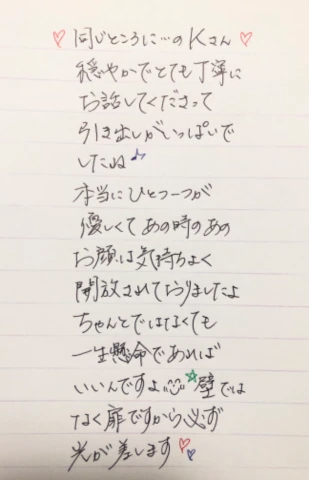 ♡同じところに…のKさん♡
穏やかでとても丁寧に
お話してくださって
引き出しがいっぱいで
したね♪
本当にひとつ一つが
優しくてあの時のあの
お顔は気持ちよく
開放されておりましたよ
ちゃんとではなくても
一生懸命であれば
いいんですよ☆壁では
なく扉ですから必ず
光が差します♡♡